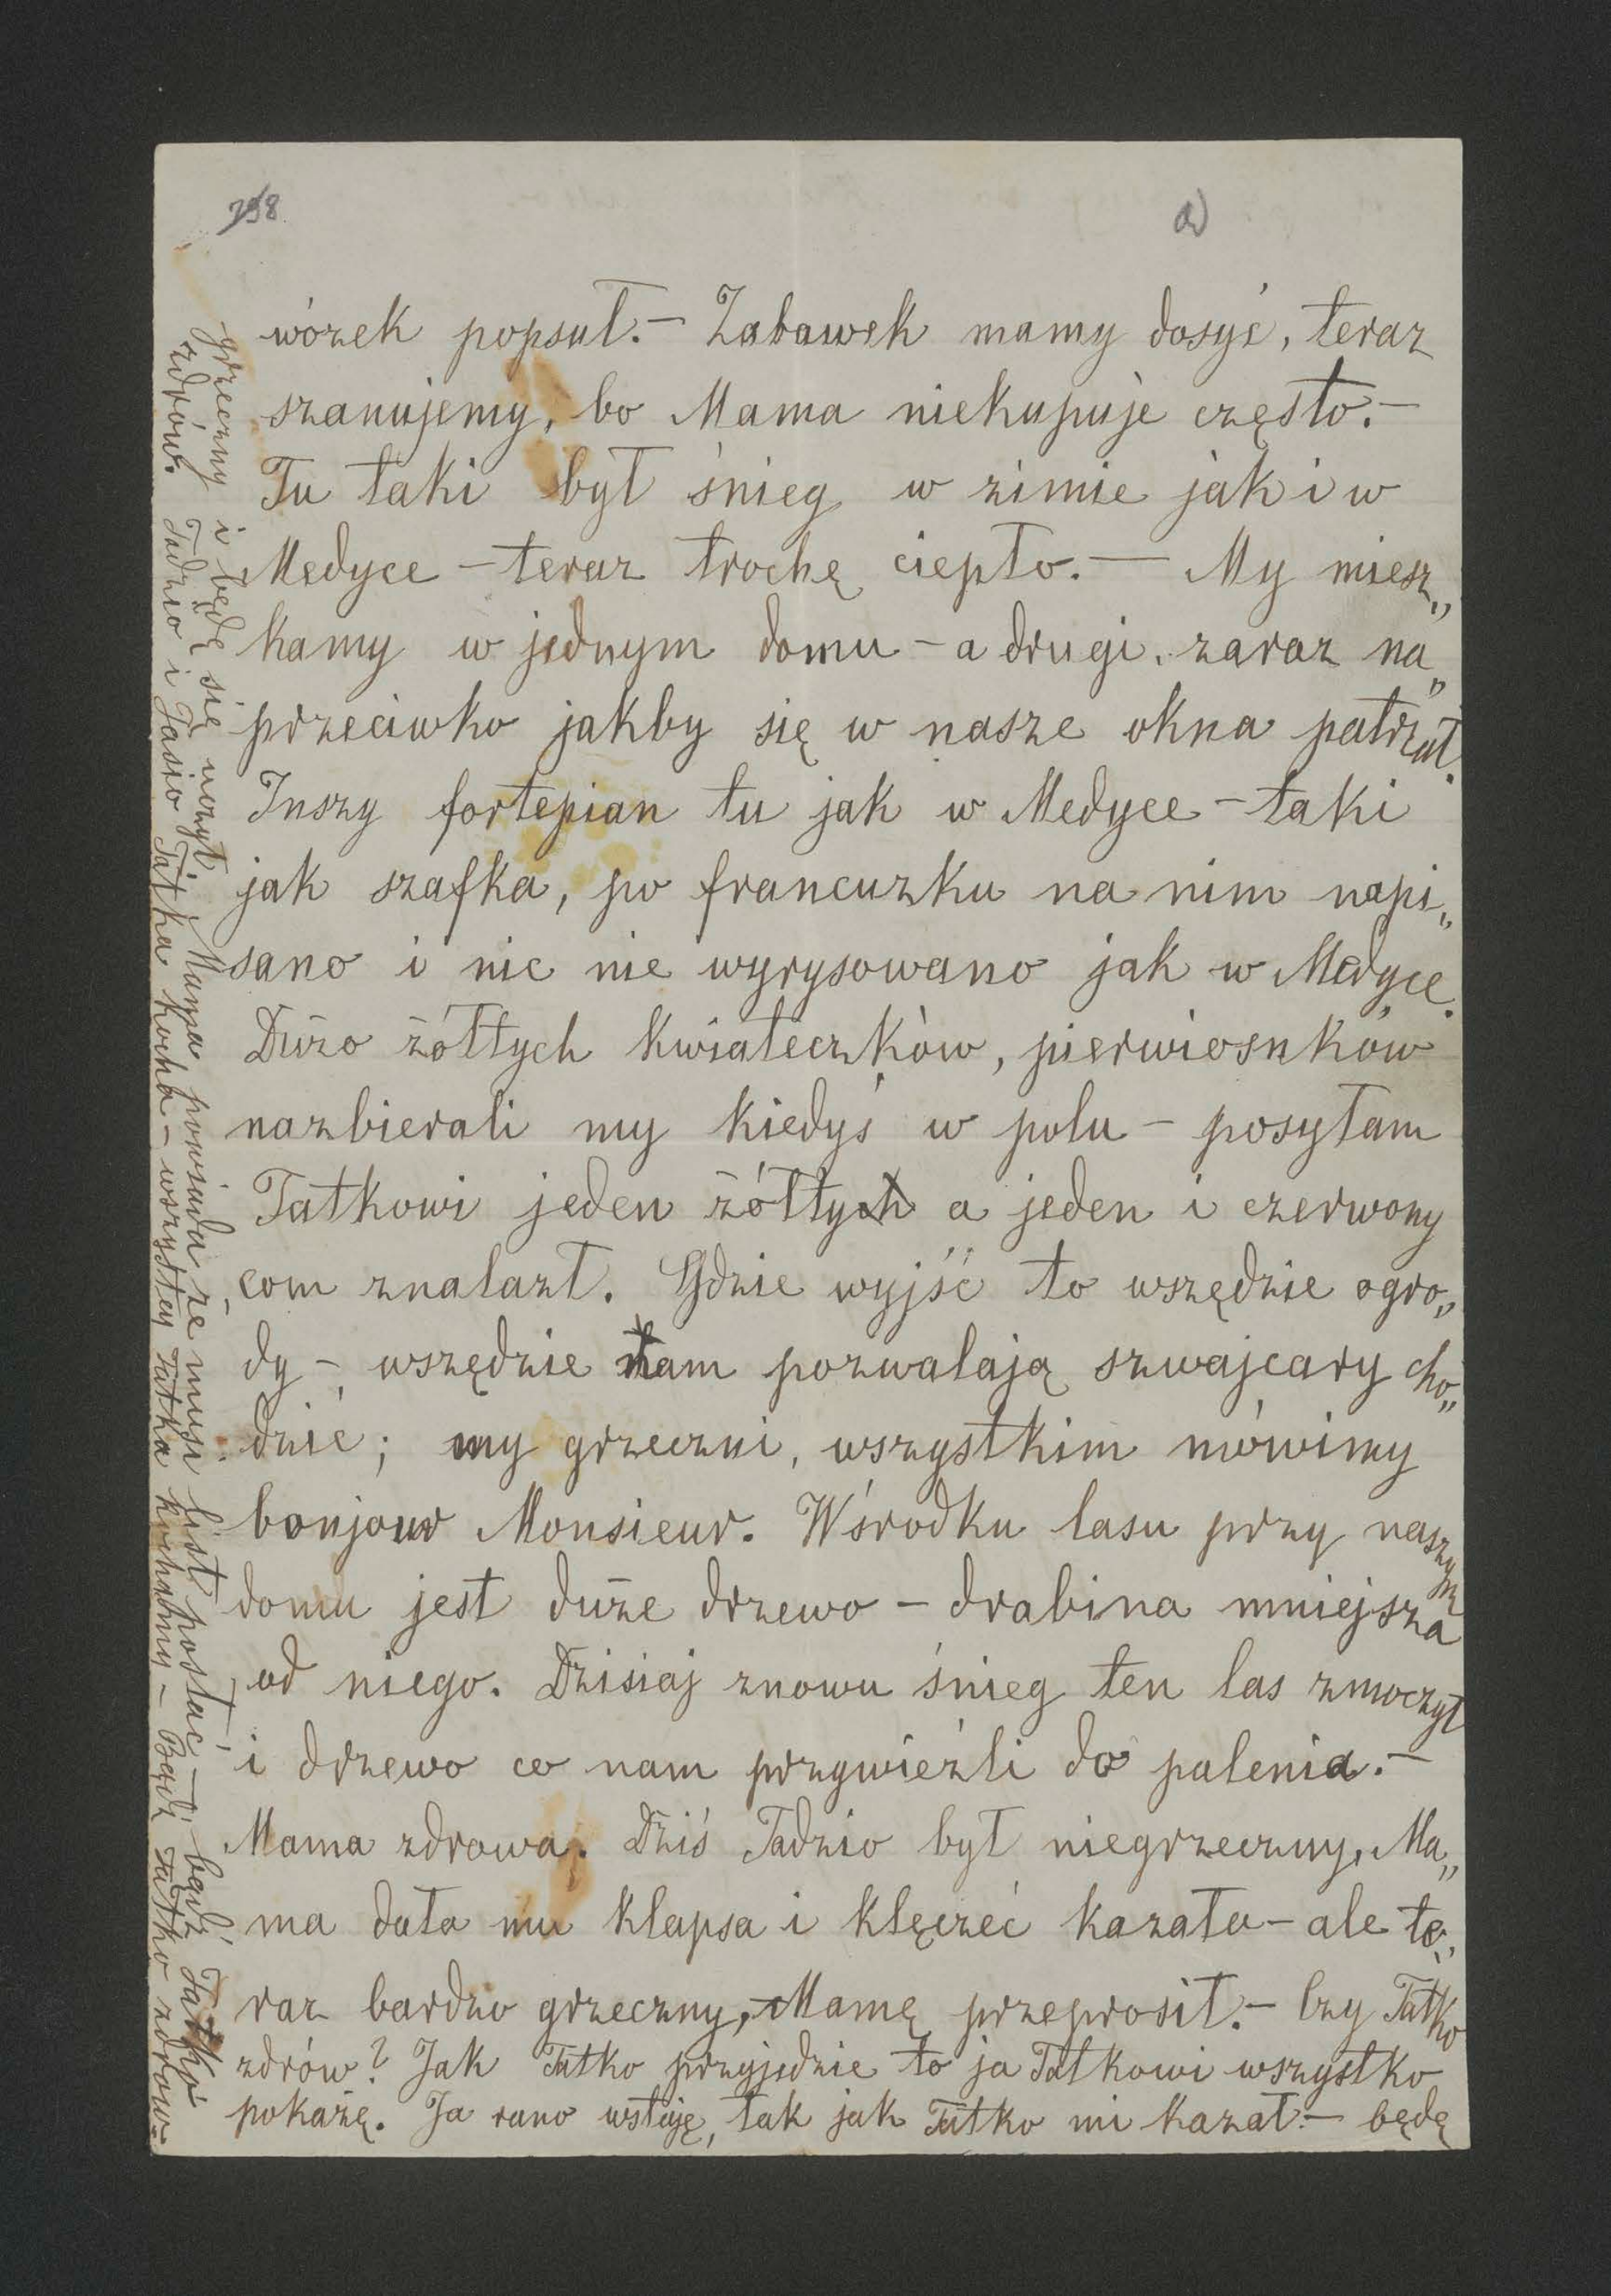 a)
wózek popsuł.— Zabawek mamy dosyć, teraz
szanujemy, bo Mama niekupuje często.—
Tu taki był śnieg w zimie jak i w
Medyce – teraz trochę ciepło.— My miesz„
kamy w jednym domu – a drugi zaraz na„
przeciwko jakby się w nasze okna patrzał.
Inszy fortepian tu jak w Medyce – taki
jak szafka, po francuzku na nim napi„
sano i nic nie wyrysowano jak w Medyce.
Dużo żółtych kwiateczków, pierwiosnków
nazbierali my kiedyś w polu – posyłam
Tatkowi jeden żółtych a jeden i czerwony
com znalazł. Gdzie wyjść to wszędzie ogro„
dy –, wszędzie nam pozwalają szwajcary cho„
dzić; my grzeczni, wszystkim mówimy
bonjour Monsieur. Wśrodku lasu przy naszym
domu jest duże drzewo – drabina mniejsza
od niego. Dzisiaj znowu śnieg ten las zmoczył
i drzewo co nam przywieźli do palenia.—
Mama zdrowa. Dziś Tadzio był niegrzeczny, Ma„
ma dała mu klapsa i klęczeć kazała – ale te„
raz bardzo grzeczny, Mamę przeprosił.— Czy Tatko
zdrów? Jak Tatko przyjedzie to ja Tatkowi wszystko
pokażę. Ja rano wstaję, tak jak Tatko mi kazał.— będę
grzeczny i będę się uczył. Mama powiada że musi list posłać – bądź Tatko
zdrów. Tadzio i Jasio Tatka kocha – wszystkuj Tatka kochamy – Bądź Tatko zdrów.